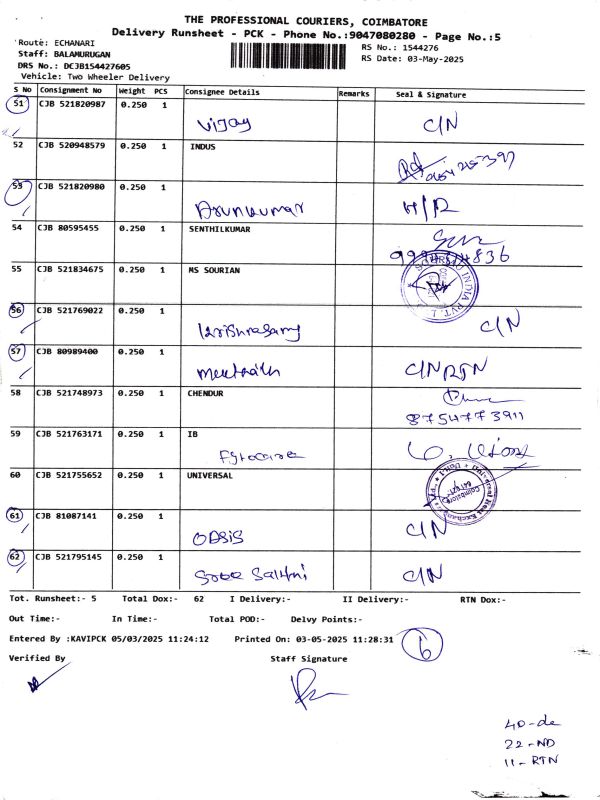 THE PROFESSIONAL COURIERS, COIMBATORE
Delivery Runsheet - PCK - Phone No.:9047080280 - Page No.:5
Route: ECHANARI
RS No.: 1544276
Staff: BALAMURUGAN
RS Date: 03-May-2025
DRS No.: DCJB154427605
Vehicle: Two Wheeler Delivery
S No Consignment No Weight PCS Consignee Details Remarks Seal & Signature
51 CJB 521820987 0.250 1 Vijay C/N
52 CJB 520948579 0.250 1 INDUS
53 CJB 521820980 0.250 1 Arunkumar H/R
54 CJB 80595455 0.250 1 SENTHILKUMAR
55 CJB 521834675 0.250 1 MS SOURIAN
INDIA PVT. LTD
56 CJB 521769022 0.250 1 C/N
57 CJB 80989400 0.250 1 C/N RTN
58 CJB 521748973 0.250 1 CHENDUR 8754773911
59 CJB 521763171 0.250 1 IB
Fytocare
60 CJB 521755652 0.250 1 UNIVERSAL
Coimbatore
61 CJB 81087141 0.250 1 OASIS C/N
62 CJB 521795145 0.250 1 C/N
Tot. Runsheet:- 5 Total Dox:- 62 I Delivery:- II Delivery:- RTN Dox:-
Out Time:- In Time:- Total POD:- Delvy Points:-
Entered By :KAVIPCK 05/03/2025 11:24:12 Printed On: 03-05-2025 11:28:31 6
Verified By Staff Signature
40-de
22-ND
11-RTN